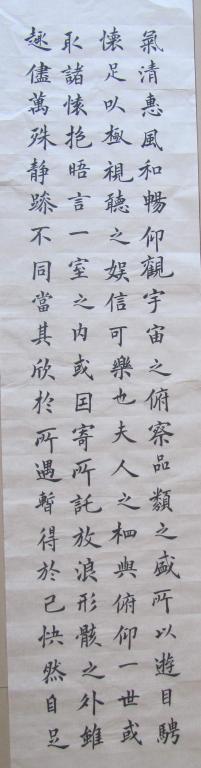 氣清惠風和暢仰觀宇宙之俯察品類之盛所以遊目騁
懷足以極視聽之娱信可樂也夫人之相與俯仰一世或
取諸懷抱晤言一室之内或因寄所託放浪形骸之外雖
趣儘萬殊静躁不同當其欣於所遇暫得於己快然自足